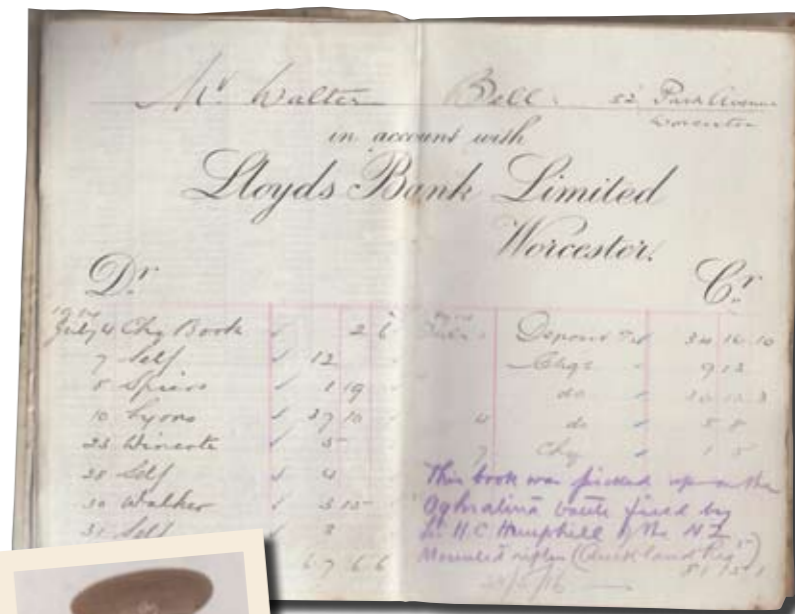 Mr Walter Bell 52 Park Avenue
Worcester
in account with
Lloyds Bank Limited
Worcester.
Dr Cr
1914
July 4 Chq Book 2 6
7 Self 12
8 Spiers 1 19
10 Lyons 37 10
23 5
28 Self 4
30 Walker 3 15
31 Self 3
67 6 6
Deposit 34 16 10
Chqs 9 13
do 30 12 3
4 do 5 8
7 Chq 1 5
This book was picked up on the
battle field by
H C Humphill of the N Z
Mounted rifles (Auckland Reg)